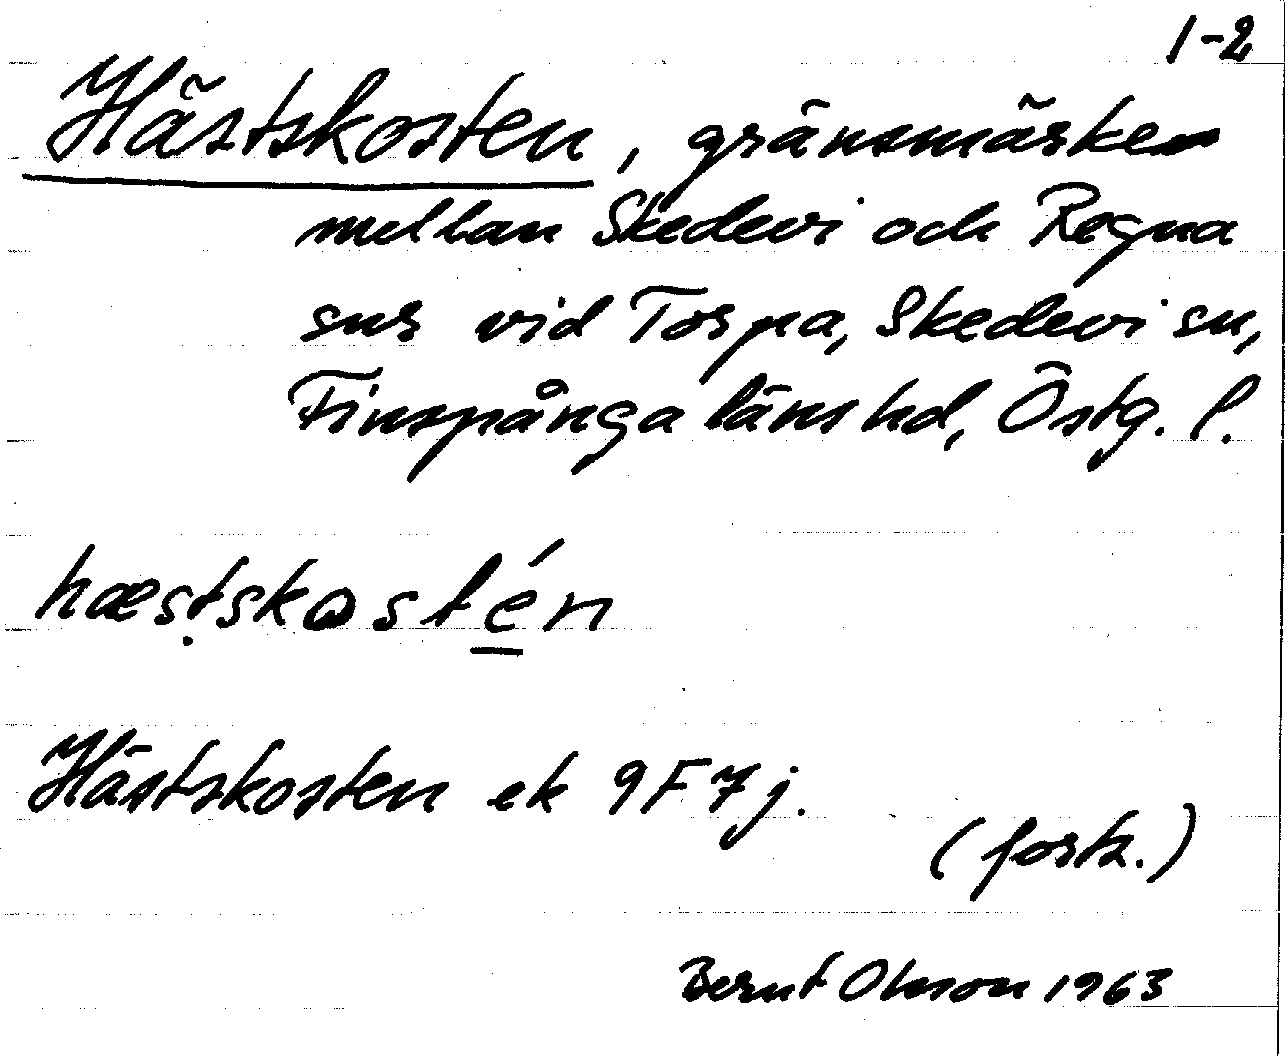 1-2
Hästskosten, gränsmärke
mellan Skedevi och Regna
snr vid Torpa, Skedevi sn,
Finspånga läns hd, Östg. l.
hæsṭskostén
Hästskosten ek 9F7j.
(forts.)
Bernt Olsson 1963